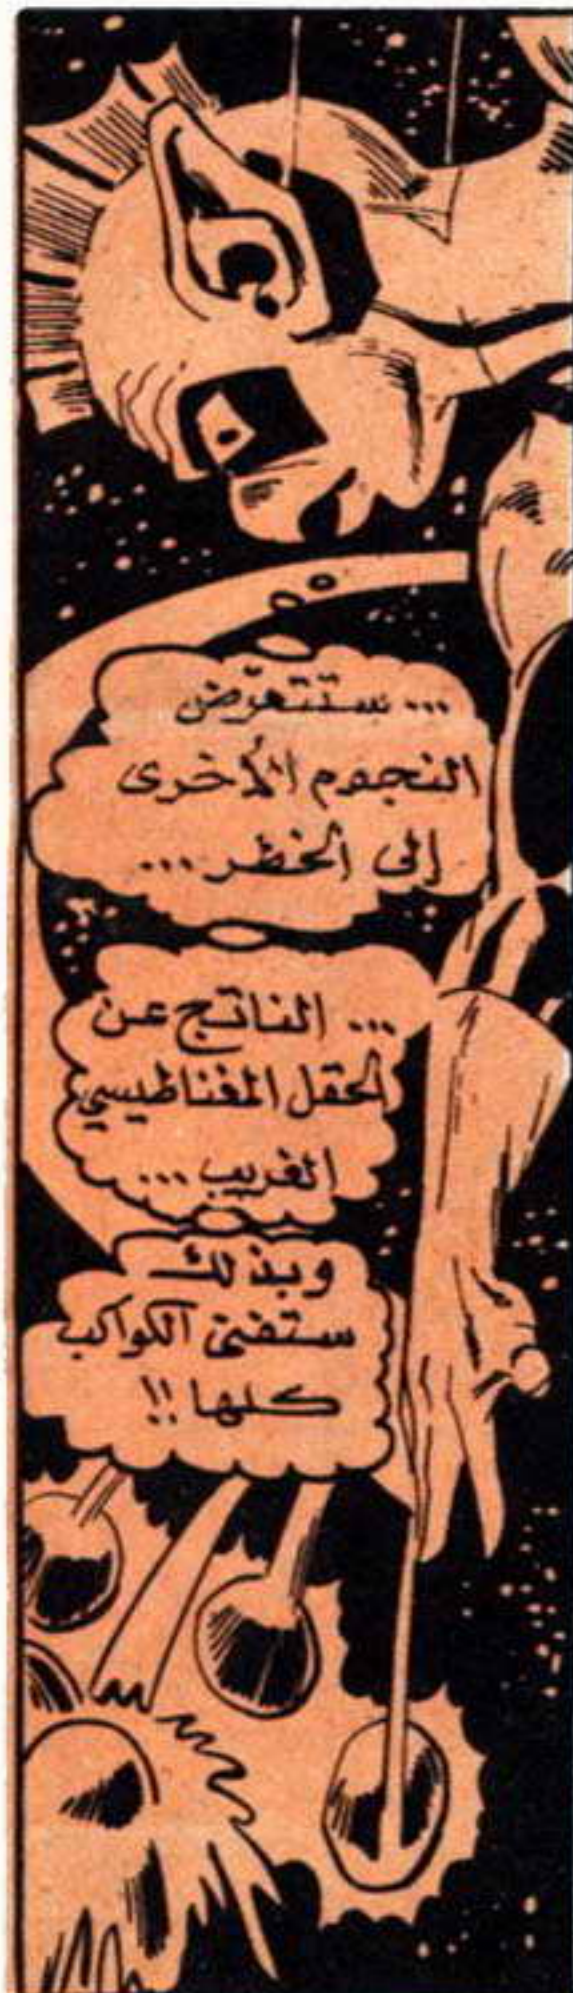 ... ستتعرّض
النجوم الأخرى
إلى الخطر ...
... الناتج عن
الحقل المغناطيسي
الغريب ...
وبذلك
ستفنى الكواكب
كلها !!